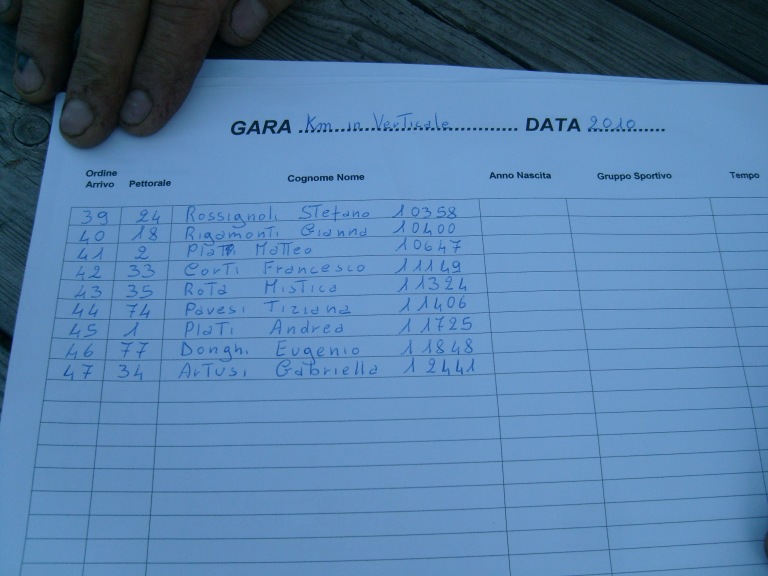 GARA Km in Verticale DATA 2010
Ordine Arrivo Pettorale Cognome Nome Anno Nascita Gruppo Sportivo Tempo
39 24 Rossignoli Stefano 10358
40 18 Rigamonti Gianna 10400
41 2 Plati Matteo 10647
42 33 Corti Francesco 11149
43 35 Rota Mistica 11324
44 74 Pavesi Tiziana 11406
45 1 Plati Andrea 11725
46 77 Donghi Eugenio 11848
47 34 Artusi Gabriella 12441